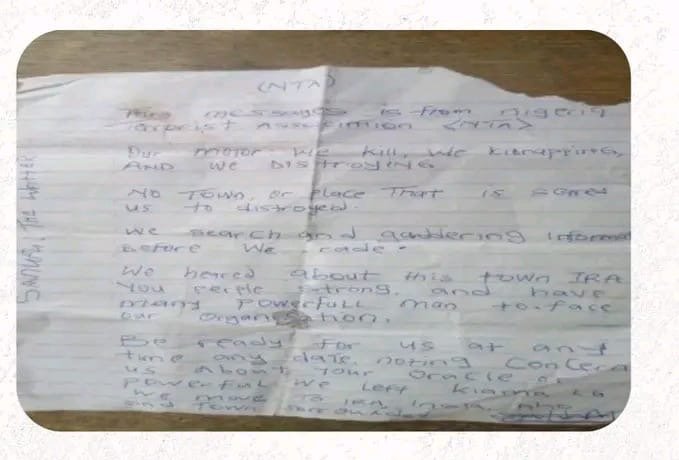 (NTA)
This messages is from nigeria
Terorist Association <NTA>
Our motor we kill, we kidnapping,
AND we DISTROYING
NO TOWN, or place That is scared
us to distroyed.
we search and gaddering informa
before we rade.
We heared about this town IRA
You people strong. and have
many powerfull man to-face
our organ tion.
Be ready for us at any
time any date. noting Concern
us About Your Oracle or
powerful we left kiama LG
we move to IRA,
and Town
SANUFA. THE WRITER